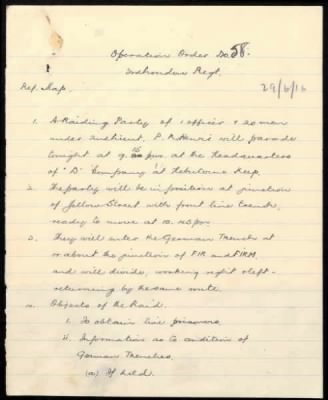 Operation Order No. 58.
2nd London Regt.
29/6/16
Ref. Map.
1. A Raiding Party of 1 officer & 20 men
under 2nd Lieut. P. R. will parade
tonight at 9.15 pm. at the Headquarters
of "D" Company at Hebuterne Keep.
2. The party will be in position at junction
of Yellow Street with front line trench,
ready to move at 10.45 pm.
3. They will enter the German Trench at
or about the junction of FIR and FIRM,
and will divide, working right & left -
returning by the same route.
4. Objects of the Raid.
i. To obtain live prisoners.
ii. Information as to condition of
German Trenches.
(a) If held.